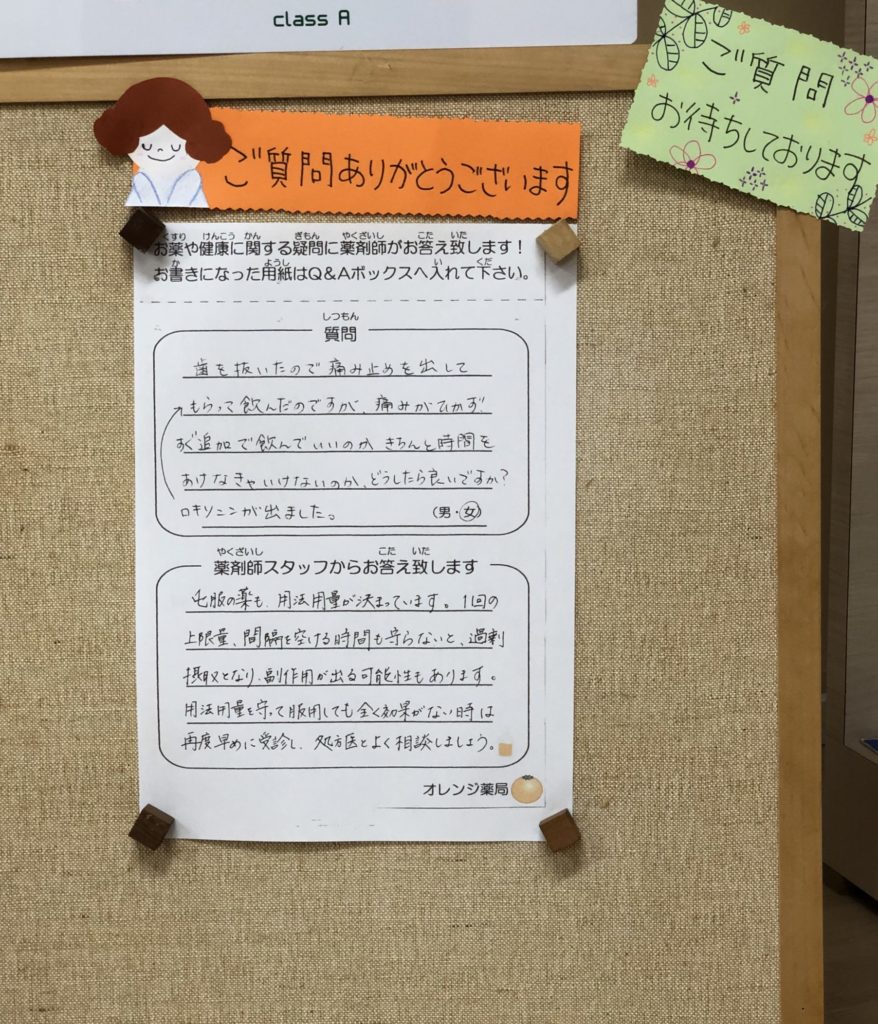 class A
ご質問
お待ちしております
ご質問ありがとうございます
くすり けんこう かん ぎもん やくざいし こた いた
お薬や健康に関する疑問に薬剤師がお答え致します！
か ようし い くだ
お書きになった用紙はQ&Aボックスへ入れて下さい。
しつもん
質問
歯を抜いたので痛み止めを出して
もらって飲んだのですが、痛みがひかず、
すぐ追加で飲んでいいのか きちんと時間を
あけなきゃいけないのか、どうしたら良いですか？
ロキソニンが出ました。 （男・女）
やくざいし こた いた
薬剤師スタッフからお答え致します
頓服の薬も、用法用量が決まっています。1回の
上限量、間隔を空ける時間も守らないと、過剰
摂取となり、副作用が出る可能性もあります。
用法用量を守って服用しても全く効果がない時は
再度早めに受診し、処方医とよく相談しましょう。
オレンジ薬局